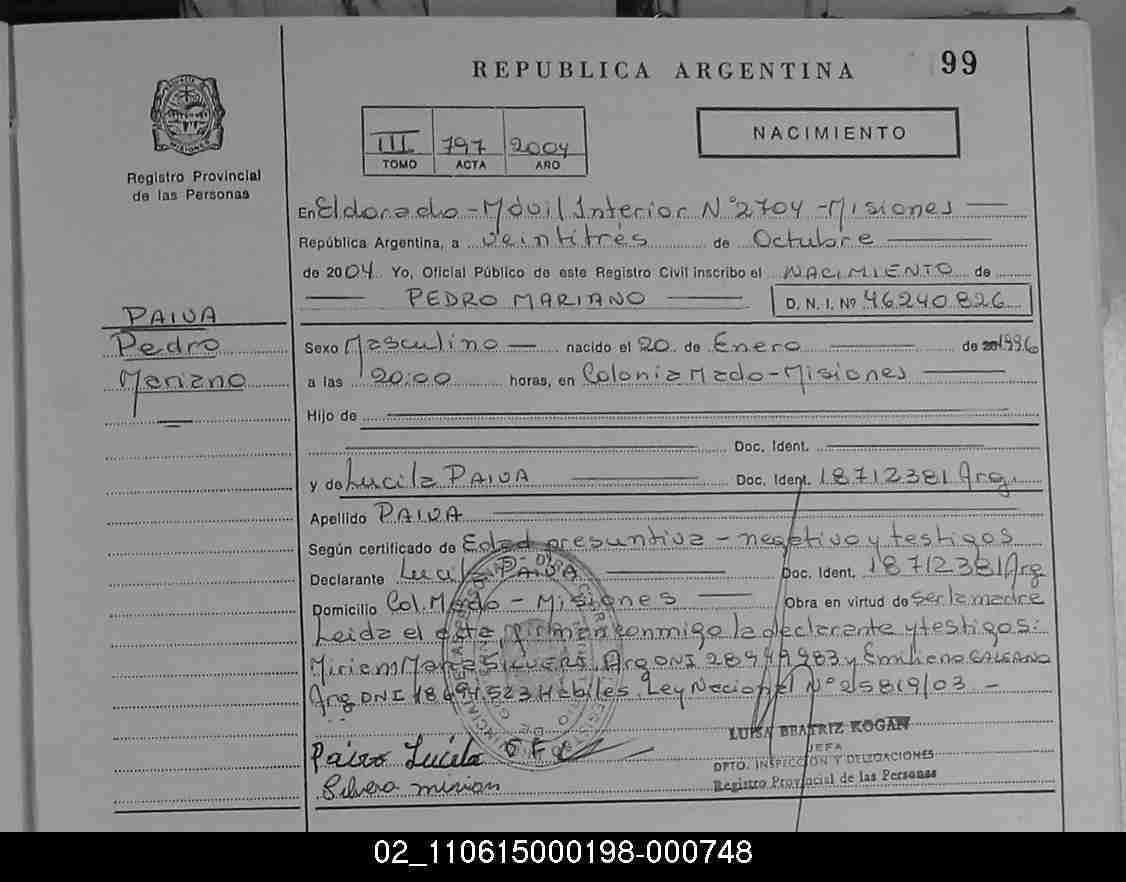 REPUBLICA ARGENTINA 99
MISIONES
Registro Provincial
de las Personas
III 797 2004
TOMO ACTA AÑO
NACIMIENTO
En Eldorado - Móvil Interior N° 2704 - Misiones
República Argentina, a veintitrés de Octubre
de 2004 Yo, Oficial Público de este Registro Civil inscribo el NACIMIENTO de
PEDRO MARIANO D. N. I. Nº 46240.826
PAIVA
Pedro
Mariano
Sexo Masculino nacido el 20 de Enero de 1996
a las 20:00 horas, en Colonia Mado - Misiones
Hijo de
Doc. Ident.
y de Lucila PAIVA Doc. Ident. 18712381 Arg.
Apellido PAIVA
Según certificado de Edad presuntiva - negativo y testigos
Declarante Lucila PAIVA Doc. Ident. 18712381 Arg
Domicilio Col. Mado - Misiones Obra en virtud de ser la madre
Leida el acta, firman conmigo la declarante y testigos:
Miriam SILVERA, Arg DNI y Emiliano GALEANO
Arg DNI Hábiles. Ley Nacional N° 25819/03 -
LUISA BEATRIZ KOGAN
JEFA
DPTO. INSPECCION Y DELEGACIONES
Registro Provincial de las Personas
Paiva Lucila
Silvera mirian
02_110615000198-000748